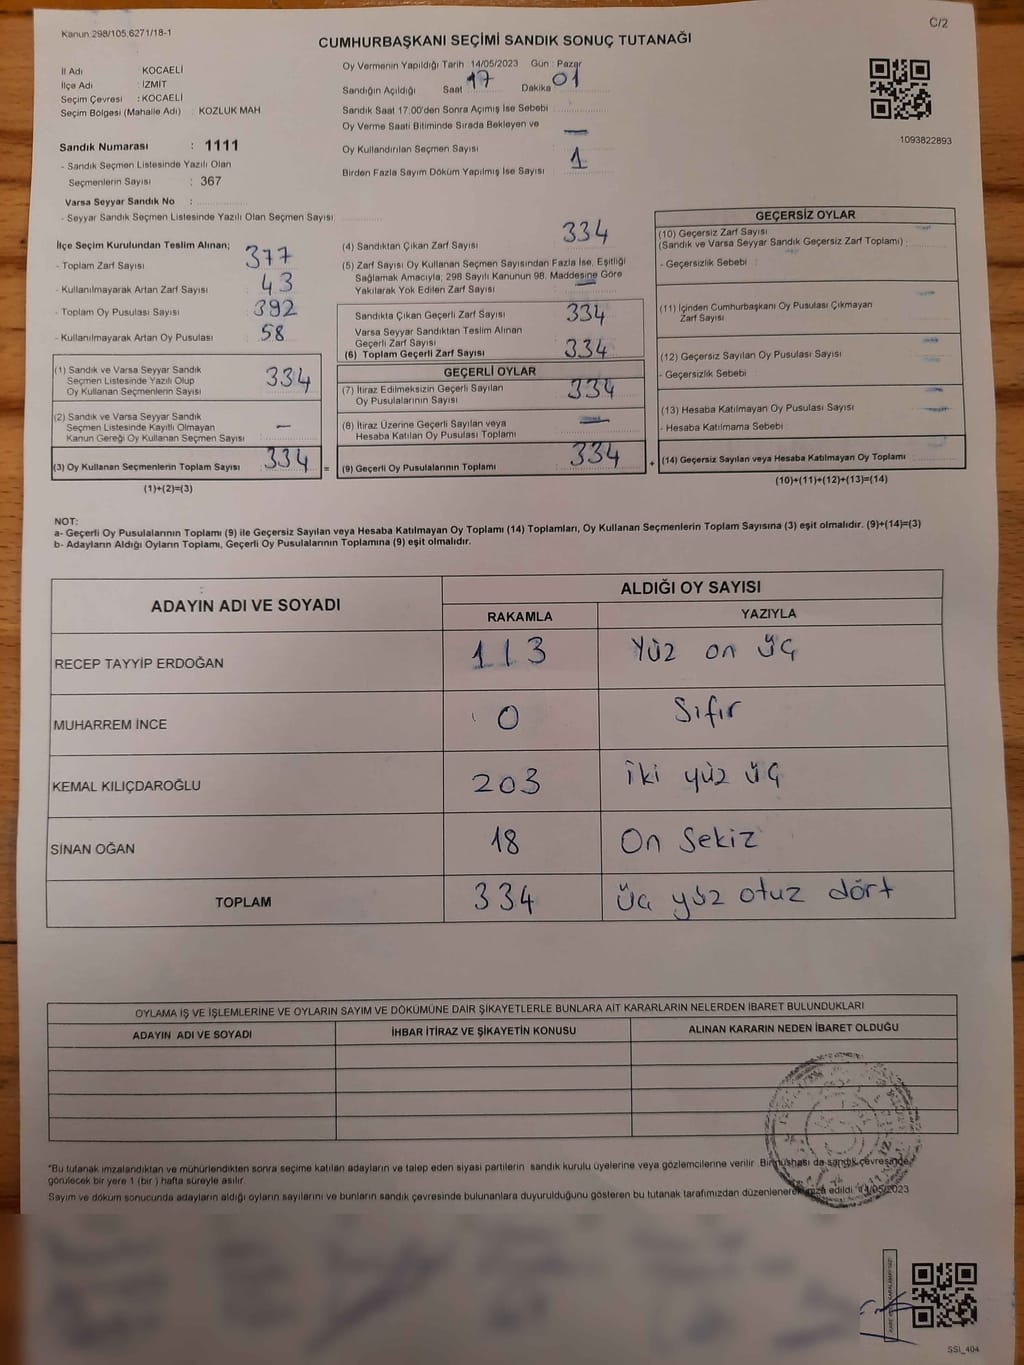 Kanun 298/105,6271/18-1
C/2
CUMHURBAŞKANI SEÇİMİ SANDIK SONUÇ TUTANAĞI
İl Adı : KOCAELİ
İlçe Adı : İZMİT
Seçim Çevresi : KOCAELİ
Seçim Bölgesi (Mahalle Adı) : KOZLUK MAH
Sandık Numarası : 1111
- Sandık Seçmen Listesinde Yazılı Olan
Seçmenlerin Sayısı : 367
Varsa Seyyar Sandık No :
- Seyyar Sandık Seçmen Listesinde Yazılı Olan Seçmen Sayısı
Oy Vermenin Yapıldığı Tarih 14/05/2023 Gün : Pazar
Sandığın Açıldığı Saat 17 Dakika 01
Sandık Saat 17:00'den Sonra Açımış İse Sebebi
Oy Verme Saati Bitiminde Sırada Bekleyen ve
Oy Kullandırılan Seçmen Sayısı —
Birden Fazla Sayım Döküm Yapılmış İse Sayısı 1
1093822893
İlçe Seçim Kurulundan Teslim Alınan;
- Toplam Zarf Sayısı 377
- Kullanılmayarak Artan Zarf Sayısı 43
- Toplam Oy Pusulası Sayısı 392
- Kullanılmayarak Artan Oy Pusulası 58
(1) Sandık ve Varsa Seyyar Sandık
Seçmen Listesinde Yazılı Olup
Oy Kullanan Seçmenlerin Sayısı 334
(2) Sandık ve Varsa Seyyar Sandık
Seçmen Listesinde Kayıtlı Olmayan
Kanun Gereği Oy Kullanan Seçmen Sayısı —
(3) Oy Kullanan Seçmenlerin Toplam Sayısı 334 =
(1)+(2)=(3)
(4) Sandıktan Çıkan Zarf Sayısı 334
(5) Zarf Sayısı Oy Kullanan Seçmen Sayısından Fazla İse, Eşitliği
Sağlamak Amacıyla; 298 Sayılı Kanunun 98. Maddesine Göre
Yakılarak Yok Edilen Zarf Sayısı —
Sandıkta Çıkan Geçerli Zarf Sayısı 334
Varsa Seyyar Sandıktan Teslim Alınan
Geçerli Zarf Sayısı
(6) Toplam Geçerli Zarf Sayısı 334
GEÇERLİ OYLAR
(7) İtiraz Edilmeksizin Geçerli Sayılan
Oy Pusulalarının Sayısı 334
(8) İtiraz Üzerine Geçerli Sayılan veya
Hesaba Katılan Oy Pusulası Toplamı —
(9) Geçerli Oy Pusulalarının Toplamı 334 +
GEÇERSİZ OYLAR
(10) Geçersiz Zarf Sayısı —
(Sandık ve Varsa Seyyar Sandık Geçersiz Zarf Toplamı)
- Geçersizlik Sebebi :
(11) İçinden Cumhurbaşkanı Oy Pusulası Çıkmayan
Zarf Sayısı —
(12) Geçersiz Sayılan Oy Pusulası Sayısı —
- Geçersizlik Sebebi
(13) Hesaba Katılmayan Oy Pusulası Sayısı —
- Hesaba Katılmama Sebebi
(14) Geçersiz Sayılan veya Hesaba Katılmayan Oy Toplamı —
(10)+(11)+(12)+(13)=(14)
NOT:
a- Geçerli Oy Pusulalarının Toplamı (9) ile Geçersiz Sayılan veya Hesaba Katılmayan Oy Toplamı (14) Toplamları, Oy Kullanan Seçmenlerin Toplam Sayısına (3) eşit olmalıdır. (9)+(14)=(3)
b- Adayların Aldığı Oyların Toplamı, Geçerli Oy Pusulalarının Toplamına (9) eşit olmalıdır.
ADAYIN ADI VE SOYADI ALDIĞI OY SAYISI
RAKAMLA YAZIYLA
RECEP TAYYİP ERDOĞAN 113 Yüz on üç
MUHARREM İNCE 0 Sıfır
KEMAL KILIÇDAROĞLU 203 iki yüz üç
SİNAN OĞAN 18 On Sekiz
TOPLAM 334 üç yüz otuz dört
OYLAMA İŞ VE İŞLEMLERİNE VE OYLARIN SAYIM VE DÖKÜMÜNE DAİR ŞİKAYETLERLE BUNLARA AİT KARARLARIN NELERDEN İBARET BULUNDUKLARI
ADAYIN ADI VE SOYADI İHBAR İTİRAZ VE ŞİKAYETİN KONUSU ALINAN KARARIN NEDEN İBARET OLDUĞU
*Bu tutanak imzalandıktan ve mühürlendikten sonra seçime katılan adayların ve talep eden siyasi partilerin sandık kurulu üyelerine veya gözlemcilerine verilir. Bir nüshası da sandık çevresinde
görülecek bir yere 1 (bir ) hafta süreyle asılır.
Sayım ve döküm sonucunda adayların aldığı oyların sayılarını ve bunların sandık çevresinde bulunanlara duyurulduğunu gösteren bu tutanak tarafımızdan düzenlenerek imza edildi. 14/05/2023
SSI_404